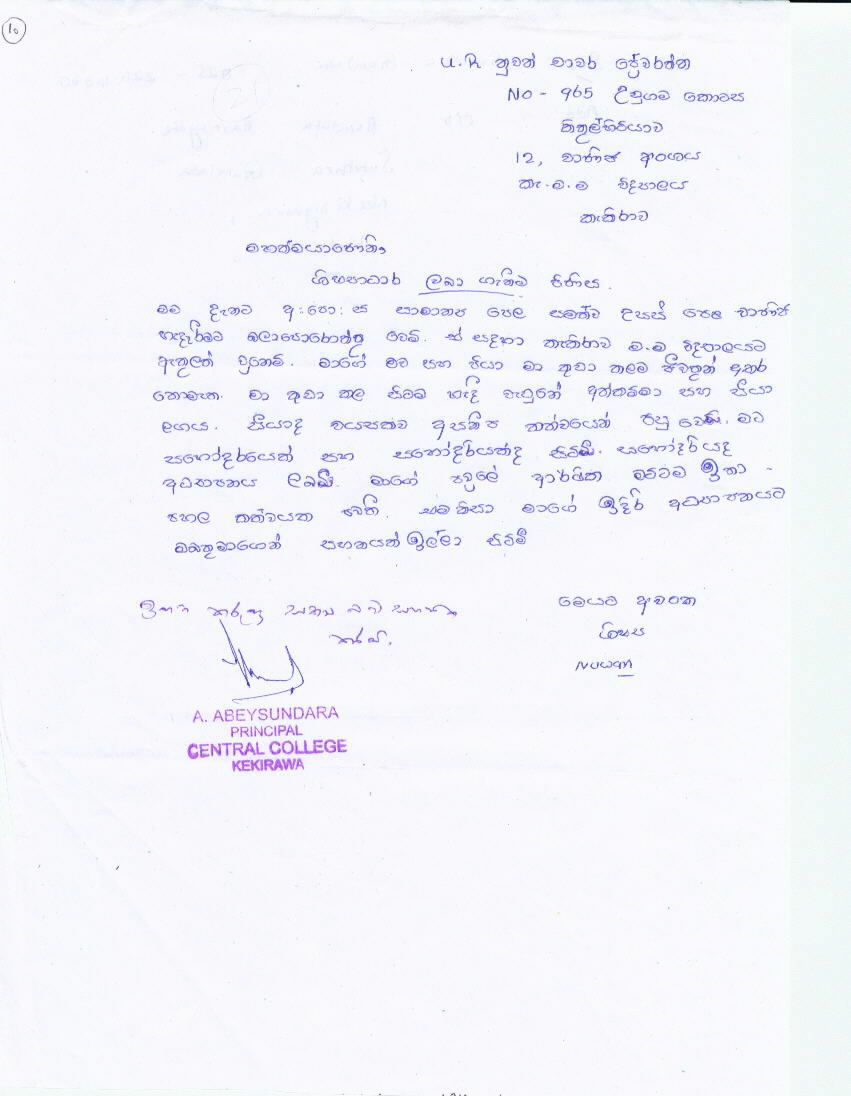 10
U.R නුවන් චාමර ප්‍රේමරත්න
NO - 965 උපුගම කොටස
කිතුල්හිරියාව
12, වාණිජ අංශය
කැ.ම.ම විද්‍යාලය
කැකිරාව
මහත්මයාණෙනි,
ශිෂ්‍යාධාර ලබා ගැනීම පිණිස.
මම දැනට අ:පො:ස සාමාන්‍ය පෙල සමත්ව උසස් පෙළ වාණිජ
හැදෑරීමට බලාපොරොත්තු වෙමි. ඒ සඳහා කැකිරාව ම.ම විද්‍යාලයට
ඇතුලත් වුනෙමි. මාගේ මව සහ පියා මා කුඩා කලම ජීවතුන් අතර
නොමැත. මා කුඩා කල සිටම හැදී වැඩුනේ අත්තම්මා සහ සීයා
ලගය. සීයාද වයසකව අසනීප තත්වයෙන් පසු වෙයි. මට
සහෝදරයෙක් සහ සහෝදරියක්ද සිටියි. සහෝදරියද
අධ්‍යාපනය ලබයි. මාගේ පවුලේ ආර්ථික මට්ටම ඉතා
පහල තත්වයක පවතී. එම නිසා මාගේ ඉදිරි අධ්‍යාපනයට
ඔබතුමාගෙන් සහනයක් ඉල්ලා සිටිමි
මෙයට අවංක
ශිෂ්‍ය
Nuwan
ඉහත කරුණු සත්‍ය බව සහතික
කරමි.
A. ABEYSUNDARA
PRINCIPAL
CENTRAL COLLEGE
KEKIRAWA